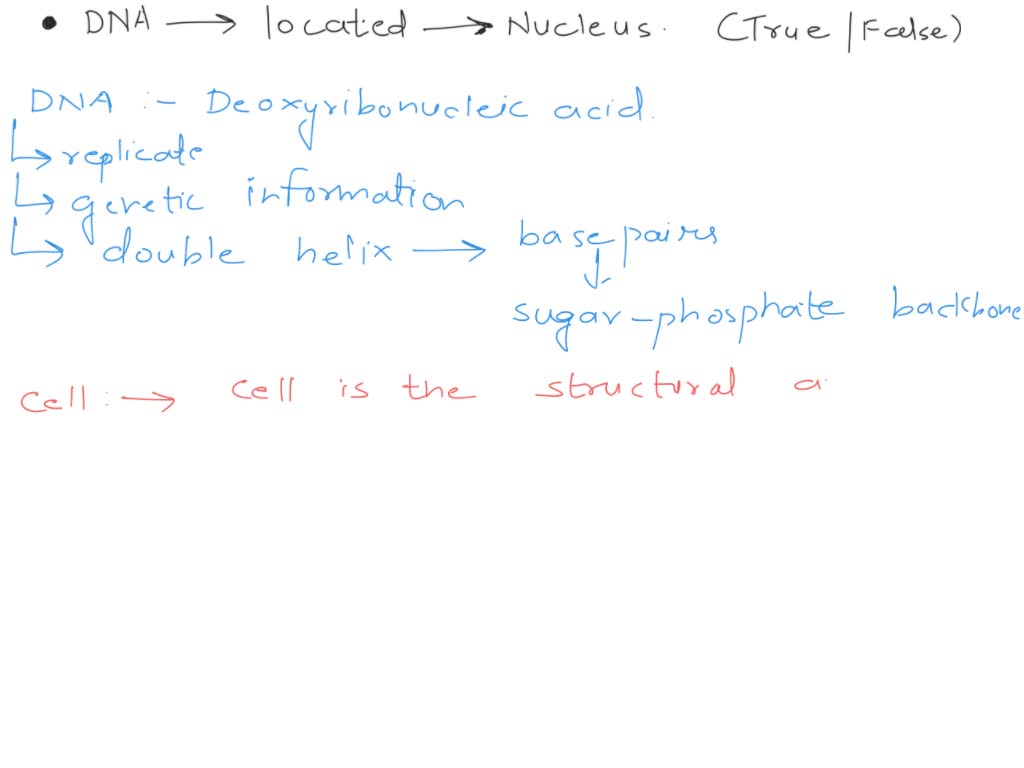 • DNA → located → Nucleus. (True/False)
DNA :- Deoxyribonucleic acid.
↳ replicate
↳ genetic information
↳ double helix → base pairs
↓
sugar-phosphate backbone
Cell :→ Cell is the structural a